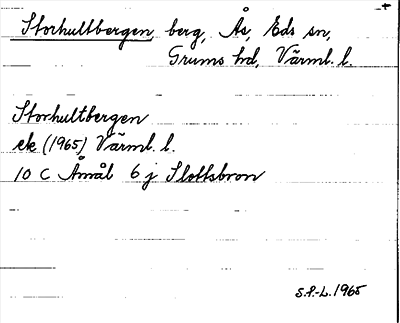 Storhultbergen, berg, Ås, Eds sn,
Grums hd, Värml. l.
Storhultbergen
ek (1965) Värml. l.
10 C Åmål 6 j Slottsbron
S.P.-L. 1965